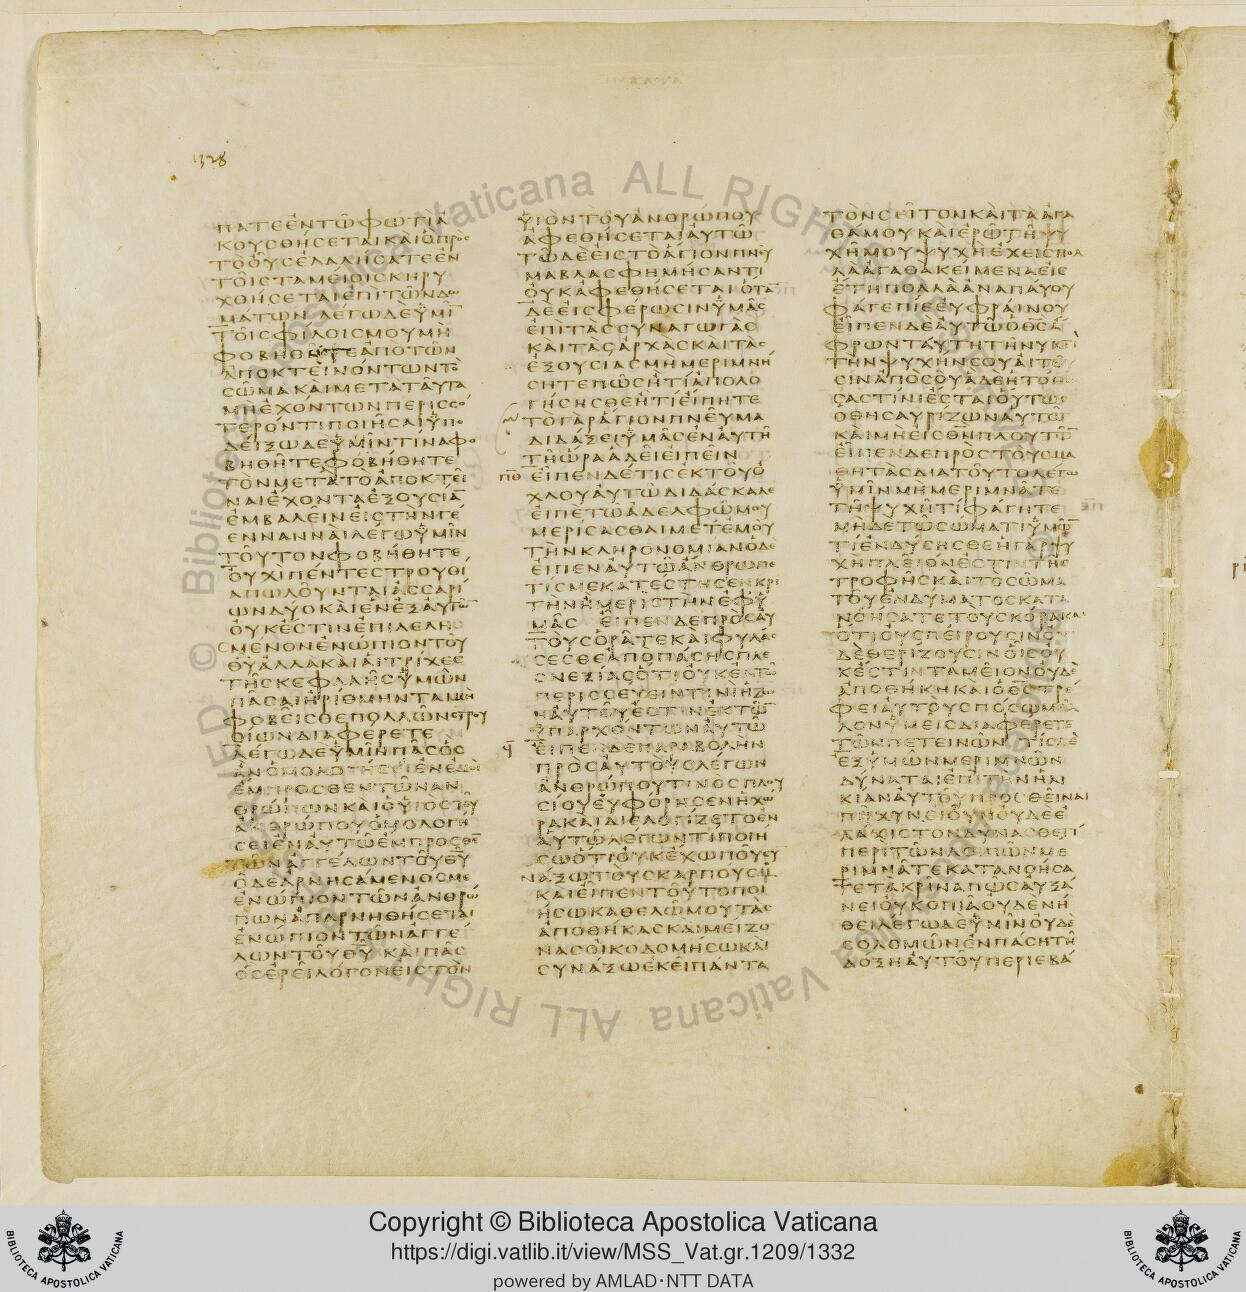 1328
ΠΑΤΕΕΝΤΩΦΩΤΙΑ
ΚΟΥΣΘΗΣΕΤΑΙΚΑΙΟΠΡΟΣ
ΤΟΟΥΣΕΛΑΛΗΣΑΤΕΕΝ
ΤΟΙΣΤΑΜΕΙΟΙΣΚΗΡΥ
ΧΘΗΣΕΤΑΙΕΠΙΤΩΝΔΩ
ΜΑΤΩΝ ΛΕΓΩΔΕΥΜΙ̅
ΤΟΙΣΦΙΛΟΙΣΜΟΥΜΗ
ΦΟΒΗΘΗΤΕΑΠΟΤΩΝ
ΑΠΟΚΤΕΙΝΟΝΤΩΝΤΟ
ΣΩΜΑΚΑΙΜΕΤΑΤΑΥΤΑ
ΜΗΕΧΟΝΤΩΝΠΕΡΙΣΣΟ
ΤΕΡΟΝΤΙΠΟΙΗΣΑΙΥΠΟ
ΔΕΙΞΩΔΕΥΜΙΝΤΙΝΑΦΟ
ΒΗΘΗΤΕΦΟΒΗΘΗΤΕ
ΤΟΝΜΕΤΑΤΟΑΠΟΚΤΕΙ
ΝΑΙΕΧΟΝΤΑΕΞΟΥΣΙΑ̅
ΕΜΒΑΛΕΙΝΕΙΣΤΗΝΓΕ
ΕΝΝΑΝΝΑΙΛΕΓΩΥΜΙΝ
ΤΟΥΤΟΝΦΟΒΗΘΗΤΕ
ΟΥΧΙΠΕΝΤΕΣΤΡΟΥΘΙ
ΑΠΩΛΟΥΝΤΑΙΑΣΣΑΡΙ
ΩΝΔΥΟΚΑΙΕΝΕΞΑΥΤΩ̅
ΟΥΚΕΣΤΙΝΕΠΙΛΕΛΗ
ΣΜΕΝΟΝΕΝΩΠΙΟΝΤΟΥ
ΘΥ̅ΑΛΛΑΚΑΙΑΙΤΡΙΧΕΣ
ΤΗΣΚΕΦΑΛΗΣΥΜΩΝ
ΠΑΣΑΙΗΡΙΘΜΗΝΤΑΙΜΗ
ΦΟΒΕΙΣΘΕΠΟΛΛΩΝΣΤΡΟΥ
ΘΙΩΝΔΙΑΦΕΡΕΤΕ
ΛΕΓΩΔΕΥΜΙΝΠΑΣΟΣ
ΑΝΟΜΟΛΟΓΗΣΕΙΕΝΕΜΟΙ
ΕΜΠΡΟΣΘΕΝΤΩΝΑΝ
ΘΡΩΠΩΝΚΑΙΟΥΙΟΣΤΟΥ
ΑΝΘΡΩΠΟΥΟΜΟΛΟΓΗ
ΣΕΙΕΝΑΥΤΩΕΜΠΡΟΣΘΕ̅
ΤΩΝΑΓΓΕΛΩΝΤΟΥΘΥ̅
ΟΔΕΑΡΝΗΣΑΜΕΝΟΣΜΕ
ΕΝΩΠΙΟΝΤΩΝΑΝΘΡΩ
ΠΩΝΑΠΑΡΝΗΘΗΣΕΤΑΙ
ΕΝΩΠΙΟΝΤΩΝΑΓΓΕ
ΛΩΝΤΟΥΘΥ̅ ΚΑΙΠΑΣ
ΟΣΕΡΕΙΛΟΓΟΝΕΙΣΤΟΝ
ΥΙΟΝΤΟΥΑΝΘΡΩΠΟΥ
ΑΦΕΘΗΣΕΤΑΙΑΥΤΩ
ΤΩΔΕΕΙΣΤΟΑΓΙΟΝΠΝ̅Υ
ΜΑΒΛΑΣΦΗΜΗΣΑΝΤΙ
ΟΥΚΑΦΕΘΗΣΕΤΑΙΟΤΑ̅
ΔΕΕΙΣΦΕΡΩΣΙΝΥΜΑΣ
ΕΠΙΤΑΣΣΥΝΑΓΩΓΑΣ
ΚΑΙΤΑΣΑΡΧΑΣΚΑΙΤΑΣ
ΕΞΟΥΣΙΑΣΜΗΜΕΡΙΜΝΗ
ΣΗΤΕΠΩΣΗΤΙΑΠΟΛΟ
ΓΗΣΗΣΘΕΗΤΙΕΙΠΗΤΕ
ΤΟΓΑΡΑΓΙΟΝΠΝΕΥΜΑ
ΔΙΔΑΞΕΙΥΜΑΣΕΝΑΥΤΗ
ΤΗΩΡΑΑΔΕΙΕΙΠΕΙΝ
Π̅Θ̅ ΕΙΠΕΝΔΕΤΙΣΕΚΤΟΥΟ
ΧΛΟΥΑΥΤΩΔΙΔΑΣΚΑΛΕ
ΕΙΠΕΤΩΑΔΕΛΦΩΜΟΥ
ΜΕΡΙΣΑΣΘΑΙΜΕΤΕΜΟΥ
ΤΗΝΚΛΗΡΟΝΟΜΙΑΝΟΔΕ
ΕΙΠΕΝΑΥΤΩΑΝΘΡΩΠΕ
ΤΙΣΜΕΚΑΤΕΣΤΗΣΕΝΚΡΙ
ΤΗΝΗΜΕΡΙΣΤΗΝΕΦΥ
ΜΑΣ ΕΙΠΕΝΔΕΠΡΟΣΑΥ
ΤΟΥΣΟΡΑΤΕΚΑΙΦΥΛΑΣ
ΣΕΣΘΕΑΠΟΠΑΣΗΣΠΛΕ
ΟΝΕΞΙΑΣΟΤΙΟΥΚΕΝΤΩ
ΠΕΡΙΣΣΕΥΕΙΝΤΙΝΙΗΖΩ
ΗΑΥΤΟΥΕΣΤΙΝΕΚΤΩ̅
ΥΠΑΡΧΟΝΤΩΝΑΥΤΩ
Ϟ̅ ΕΙΠΕΝΔΕΠΑΡΑΒΟΛΗΝ
ΠΡΟΣΑΥΤΟΥΣΛΕΓΩΝ
ΑΝΘΡΩΠΟΥΤΙΝΟΣΠΛΟΥ
ΣΙΟΥΕΥΦΟΡΗΣΕΝΗΧΩ
ΡΑΚΑΙΔΙΕΛΟΓΙΖΕΤΟΕΝ
ΑΥΤΩΛΕΓΩΝΤΙΠΟΙΗ
ΣΩΟΤΙΟΥΚΕΧΩΠΟΥΣΥ
ΝΑΞΩΤΟΥΣΚΑΡΠΟΥΣΜΟΥ
ΚΑΙΕΙΠΕΝΤΟΥΤΟΠΟΙ
ΗΣΩΚΑΘΕΛΩΜΟΥΤΑΣ
ΑΠΟΘΗΚΑΣΚΑΙΜΕΙΖΟ
ΝΑΣΟΙΚΟΔΟΜΗΣΩΚΑΙ
ΣΥΝΑΞΩΕΚΕΙΠΑΝΤΑ
ΤΟΝΣΕΙΤΟΝΚΑΙΤΑΑΓΑ
ΘΑΜΟΥΚΑΙΕΡΩΤΗΨΥ
ΧΗΜΟΥΨΥΧΗΕΧΕΙΣΠΟΛ
ΛΑΑΓΑΘΑΚΕΙΜΕΝΑΕΙΣ
ΕΤΗΠΟΛΛΑΑΝΑΠΑΥΟΥ
ΦΑΓΕΠΙΕΕΥΦΡΑΙΝΟΥ
ΕΙΠΕΝΔΕΑΥΤΩΟΘ̅Σ̅Α
ΦΡΩΝΤΑΥΤΗΤΗΝΥΚΤΙ
ΤΗΝΨΥΧΗΝΣΟΥΑΙΤΟΥ
ΣΙΝΑΠΟΣΟΥΑΔΕΗΤΟΙ
ΜΑΣΑΣΤΙΝΙΕΣΤΑΙΟΥΤΩΣ
ΟΘΗΣΑΥΡΙΖΩΝΑΥΤΩ
ΚΑΙΜΗΕΙΣΘΝ̅ΠΛΟΥΤΩ̅
ΕΙΠΕΝΔΕΠΡΟΣΤΟΥΣΜΑ
ΘΗΤΑΣΔΙΑΤΟΥΤΟΛΕΓΩ
ΥΜΙΝΜΗΜΕΡΙΜΝΑΤΕ
ΤΗΨΥΧΗΤΙΦΑΓΗΤΕ
ΜΗΔΕΤΩΣΩΜΑΤΙΥΜΩ̅
ΤΙΕΝΔΥΣΗΣΘΕΗΓΑΡΨΥ
ΧΗΠΛΕΙΟΝΕΣΤΙΝΤΗΣ
ΤΡΟΦΗΣΚΑΙΤΟΣΩΜΑ
ΤΟΥΕΝΔΥΜΑΤΟΣΚΑΤΑ
ΝΟΗΣΑΤΕΤΟΥΣΚΟΡΑΚΑΣ
ΟΤΙΟΥΣΠΕΙΡΟΥΣΙΝΟΥ
ΔΕΘΕΡΙΖΟΥΣΙΝΟΙΣΟΥ
ΚΕΣΤΙΝΤΑΜΕΙΟΝΟΥΔΕ
ΑΠΟΘΗΚΗΚΑΙΟΘ̅Σ̅ΤΡΕ
ΦΕΙΑΥΤΟΥΣΠΟΣΩΜΑΛ
ΛΟΝΥΜΕΙΣΔΙΑΦΕΡΕΤΕ
ΤΩΝΠΕΤΕΙΝΩΝ ΤΙΣΔΕ
ΕΞΥΜΩΝΜΕΡΙΜΝΩΝ
ΔΥΝΑΤΑΙΕΠΙΤΗΝΗΛΙ
ΚΙΑΝΑΥΤΟΥΠΡΟΣΘΕΙΝΑΙ
ΠΗΧΥΝΕΙΟΥΝΟΥΔΕΕ
ΛΑΧΙΣΤΟΝΔΥΝΑΣΘΕΤΙ
ΠΕΡΙΤΩΝΛΟΙΠΩΝΜΕ
ΡΙΜΝΑΤΕΚΑΤΑΝΟΗΣΑ
ΤΕΤΑΚΡΙΝΑΠΩΣΑΥΞΑ
ΝΕΙΟΥΚΟΠΙΑΟΥΔΕΝΗ
ΘΕΙΛΕΓΩΔΕΥΜΙΝΟΥΔΕ
ΣΟΛΟΜΩΝΕΝΠΑΣΗΤΗ
ΔΟΞΗΑΥΤΟΥΠΕΡΙΕΒΑ
Copyright © Biblioteca Apostolica Vaticana
https://digi.vatlib.it/view/MSS_Vat.gr.1209/1332
powered by AMLAD·NTT DATA
BIBLIOTECA APOSTOLICA VATICANA
BIBLIOTECA APOSTOLICA VATICANA